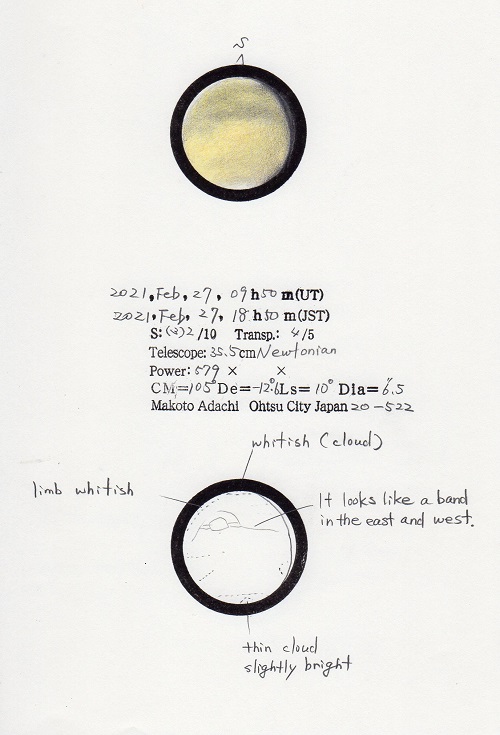 S
2021, Feb, 27, 09h50m(UT)
2021, Feb, 27, 18h50m(JST)
S: 2/10 Transp.: 4/5
Telescope: 35.5cm Newtonian
Power: 579 × ×
CM=105° De=-12.6° Ls=10° Dia=6".5
Makoto Adachi Ohtsu City Japan 20-522
whitish (cloud)
limb whitish
It looks like a band
in the east and west.
thin cloud
slightly bright